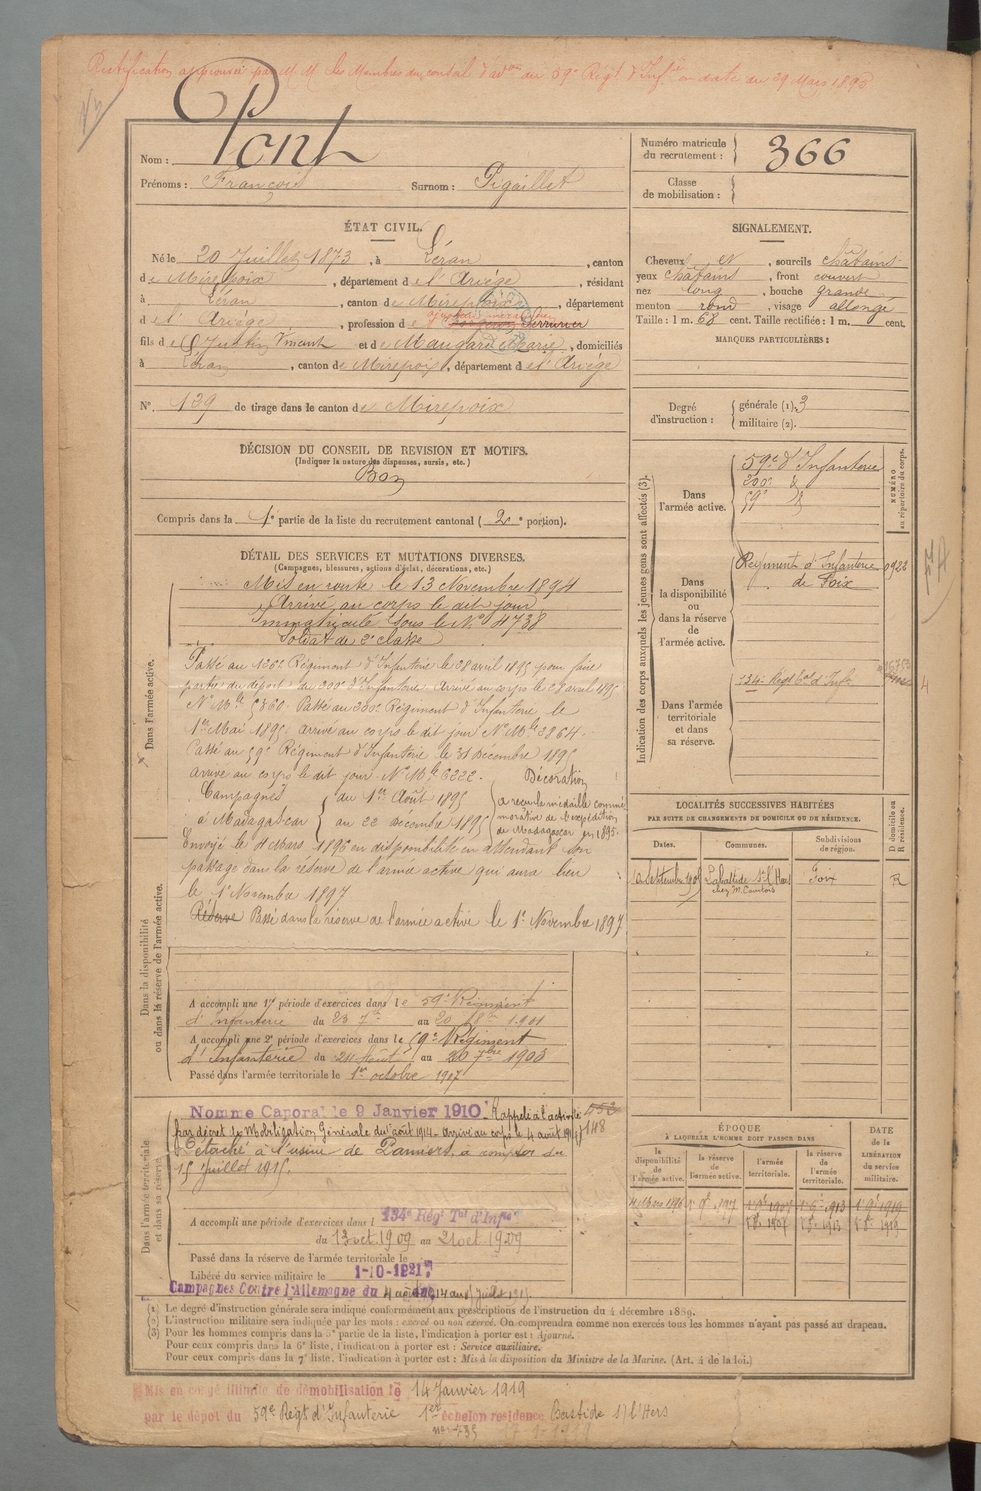 Rectification approuvée par M.M. les Membres du conseil d'ad^on du 59^e Régt d'Inf^ie en date du 29 Mars 1893
Nom : Pont
Prénoms : François Surnom : Pigaillet
Numéro matricule du recrutement : 366
Classe de mobilisation :
ÉTAT CIVIL.
Né le 20 Juillet 1873, à Léran, canton
de Mirepoix, département de l'Ariége, résidant
à Léran, canton de Mirepoix, département
de l'Ariége, profession de serrurier
fils de Justin Vincent et de Maugard Marie, domiciliés
à Léran, canton de Mirepoix, département de l'Ariége
N° 139 de tirage dans le canton de Mirepoix
SIGNALEMENT.
Cheveux et, sourcils châtains
yeux châtains, front couvert
nez long, bouche grande
menton rond, visage allongé
Taille : 1 m. 68 cent. Taille rectifiée : 1 m. cent.
MARQUES PARTICULIÈRES :
Degré d'instruction : générale (1). 3
militaire (2).
DÉCISION DU CONSEIL DE REVISION ET MOTIFS.
(Indiquer la nature des dispenses, sursis, etc.)
Bon
Compris dans la 1^e partie de la liste du recrutement cantonal (2^e portion).
DÉTAIL DES SERVICES ET MUTATIONS DIVERSES.
(Campagnes, blessures, actions d'éclat, décorations, etc.)
Dans l'armée active.
Mis en route le 13 Novembre 1894
Arrivé au corps le dit jour
immatriculé sous le N° 4738
Soldat de 2^e classe
Passé au 126^e Régiment d'Infanterie le 28 avril 1895 pour faire
partie du dépôt du 200^e d'Infanterie Arrivé au corps le 28 avril 1895
N° M^le 5360. Passé au 200^e Régiment d'Infanterie le
1^er Mai 1895. arrivé au corps le dit jour N° M^le 2864.
Passé au 59^e Régiment d'Infanterie le 31 décembre 1895
arrivé au corps le dit jour N° M^le 6222.
Campagnes à Madagascar { du 1^er Août 1895 au 22 décembre 1895
Décoration
a reçu la médaille commé-
morative de l'expédition
de Madagascar en 1895.
Envoyé le 4 Mars 1896 en disponibilité en attendant son
passage dans la réserve de l'armée active qui aura lieu
le 1^er Novembre 1897
Réserve Passé dans la réserve de l'armée active le 1^er Novembre 1897
Dans la disponibilité ou dans la réserve de l'armée active.
A accompli une 1^re période d'exercices dans le 59^e Régiment
d'Infanterie du 23 7^bre au 20 8^bre 1901
A accompli une 2^e période d'exercices dans le 59^e Régiment
d'Infanterie du 24 Août au 20 7^bre 1903
Passé dans l'armée territoriale le 1^er octobre 1907
Dans l'armée territoriale et dans sa réserve.
Nommé Caporal le 9 Janvier 1910 Rappelé à l'activité
par décret de Mobilisation Générale du 1^er août 1914 - arrivé au corps le 4 août 1914
Détaché à l'usine de Pamiers, à compter du
15 Juillet 1915.
148
A accompli une période d'exercices dans le 134^e Rég^t T^al d'Inf^ie
du 13 oct 1909 au 21 oct 1909
Passé dans la réserve de l'armée territoriale le
Libéré du service militaire le 1-10-1921
Campagnes Contre l'Allemagne du 4 août 1914 au Juillet 1915
Indication des corps auxquels les jeunes gens sont affectés (3).
NUMÉRO au répertoire du corps.
Dans l'armée active.
59^e d'Infanterie
200^e d^o
59^e d^o
Dans la disponibilité ou dans la réserve de l'armée active.
Régiment d'Infanterie de Foix
0922
Dans l'armée territoriale et dans sa réserve.
134^e Régt T^al d'Inf^ie
LOCALITÉS SUCCESSIVES HABITÉES
PAR SUITE DE CHANGEMENTS DE DOMICILE OU DE RÉSIDENCE.
Dates. Communes. Subdivisions de région. D domicile ou R résidence.
Labastide s^r l'Hers Foix R
ÉPOQUE
À LAQUELLE L'HOMME DOIT PASSER DANS
DATE de la LIBÉRATION du service militaire.
la disponibilité de l'armée active. la réserve de l'armée active. l'armée territoriale. la réserve de l'armée territoriale.
4 Mars 1896 1^er 9^bre 1897 1^er 9^bre 1907 1^er 9^bre 1913 1^er 9^bre 1919
1^er 8^bre 1907 1^er 8^bre 1913 1^er 8^bre 1919
(1) Le degré d'instruction générale sera indiqué conformément aux prescriptions de l'instruction du 4 décembre 1889.
(2) L'instruction militaire sera indiquée par les mots : exercé ou non exercé. On comprendra comme non exercés tous les hommes n'ayant pas passé au drapeau.
(3) Pour les hommes compris dans la 5^e partie de la liste, l'indication à porter est : Ajourné.
Pour ceux compris dans la 6^e liste, l'indication à porter est : Service auxiliaire.
Pour ceux compris dans la 7^e liste, l'indication à porter est : Mis à la disposition du Ministre de la Marine. (Art. 4 de la loi.)
Mis en congé illimité de démobilisation le 14 Janvier 1919
par le dépôt du 59^e Régt d'Infanterie 1^er échelon résidence Bastide s/l'Hers
n° 735